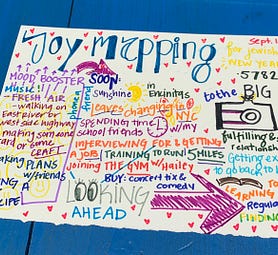 Joy mapping
Sept. 1
for Jewish
NEW YEAR
5782
MOOD BOOSTER
MUSIC!!
FRESH AIR
- walking on
East river or
west side highway
making someone
card or some
CRAFT
making PLANS
w/friends
A
phone a friend
SOON:
Sunshine in Encinitas
leaves changing in NYC
SPENDING time w/my
school friends
INTERVIEWING FOR & GETTING
A JOB TRAINING TO RUN 5 MILES
joining THE GYM w/Hailey
BUY: concert tix &
comedy
LOOKING
AHEAD
to the BIG
fulfilling &
relationship
Getting
to go back to
FOR
LEARNING
Regular